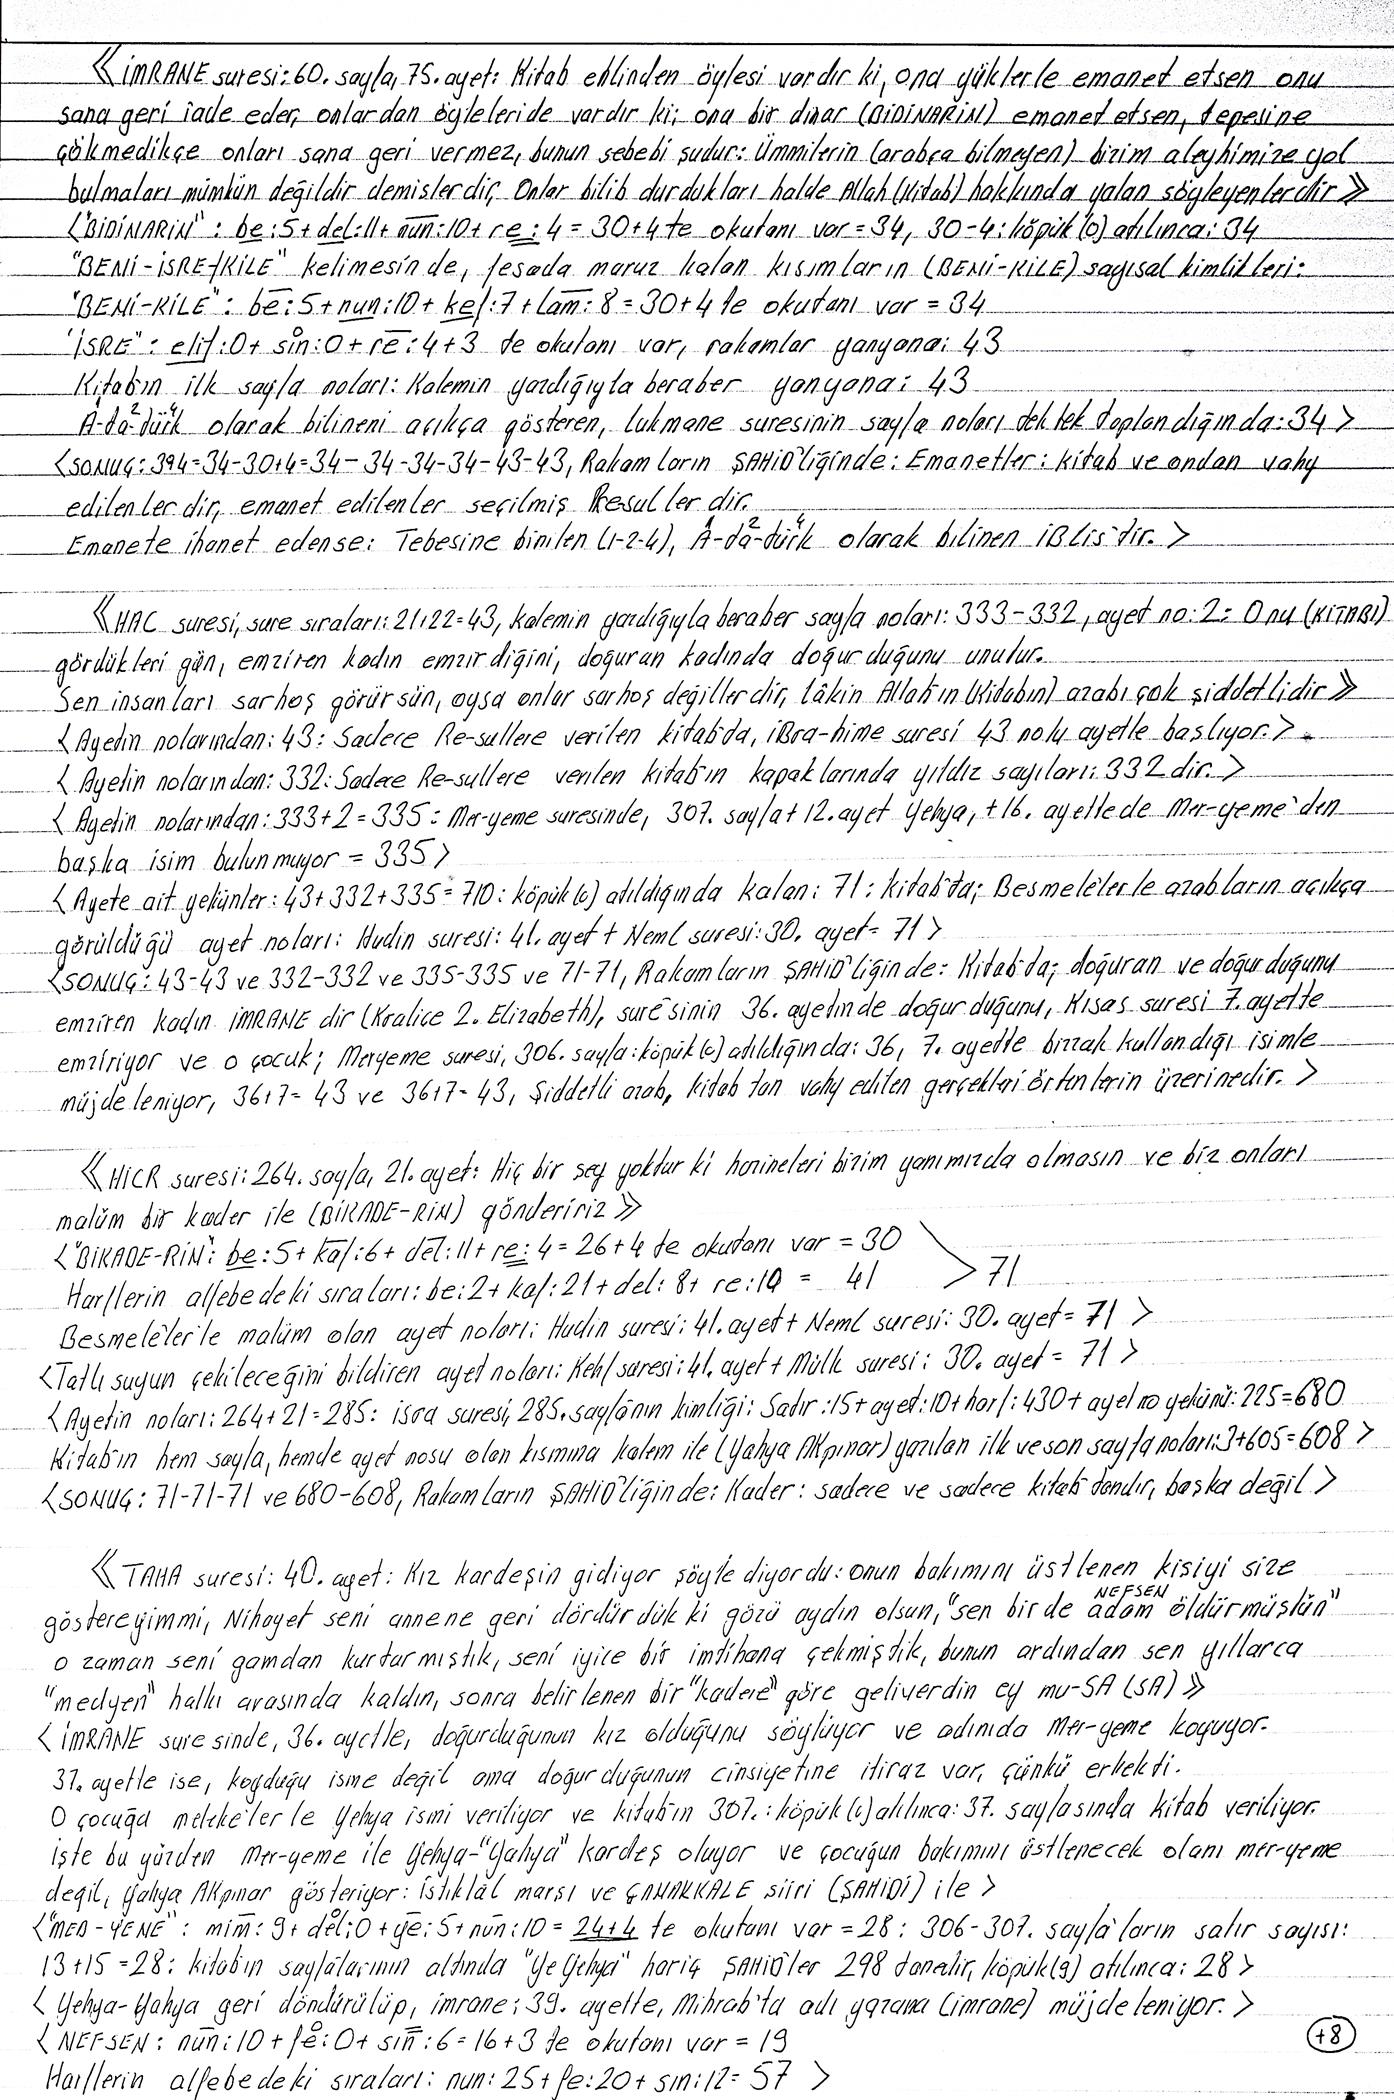 《İMRANE suresi: 60. sayfa, 75. ayet: Kitab ehlinden öylesi vardır ki, ona yüklerle emanet etsen onu
sana geri iade eder, onlardan öyleleride vardır ki; ona bir dinar (BİDİNARİN) emanet etsen, tepesine
çökmedikçe onları sana geri vermez, bunun sebebi şudur: Ümmilerin (arabça bilmeyen) bizim aleyhimize yol
bulmaları mümkün değildir demişlerdir, Onlar bilib durdukları halde Allah (Kitab) hakkında yalan söyleyenlerdir》
<"BİDİNARİN" : be:5+del:11+nun:10+re:4=30+4 te okutanı var=34, 30-4: köpük (0) atılınca: 34
"BENİ-İSRE-KİLE" kelimesinde, fesada maruz kalan kısımların (BENİ-KİLE) sayısal kimlikleri:
"BENİ-KİLE": be:5+nun:10+kef:7+lam:8=30+4 te okutanı var = 34
'İSRE": elif:0+ sin:0+re:4+3 te okutanı var, rakamlar yanyana: 43
Kitabın ilk sayfa noları: Kalemin yazdığıyla beraber yanyana: 43
A-da²-türk⁴ olarak bilineni açıkça gösteren, lukmane suresinin sayfa noları tek tek toplandığında: 34>
<SONUÇ: 394=34-30+4=34-34-34-34-43-43, Rakamların ŞAHİD'liğinde: Emanetler: kitab ve ondan vahy
edilenlerdir, emanet edilenler seçilmiş Resullerdir.
Emanete ihanet edense: Tebesine binilen (1-2-4), A-da²-türk⁴ olarak bilinen iBlis'tir.>
《HAC suresi, sure sıraları: 21+22=43, kalemin yazdığıyla beraber sayfa noları: 333-332, ayet no: 2: Onu (KİTABI)
gördükleri gün, emziren kadın emzirdiğini, doğuran kadında doğurduğunu unutur.
Sen insanları sarhoş görürsün, oysa onlar sarhoş değillerdir, lâkin Allah'ın (Kitabın) azabı çok şiddetlidir》
<Ayetin nolarından: 43: Sadece Re-sullere verilen kitab'da, iBra-hime suresi 43 nolu ayetle başlıyor.>
<Ayetin nolarından: 332: Sadece Re-sullere verilen kitab'ın kapaklarında yıldız sayıları: 332 dir.>
<Ayetin nolarından: 333+2=335: Mer-yeme suresinde, 307. sayfa+12. ayet Yehya, +16. ayettede Mer-yeme'den
başka isim bulunmuyor = 335>
<Ayete ait yekünler: 43+332+335=710: köpük (0) atıldığında kalan: 71: kitab'ta; Besmele'lerle azabların açıkça
görüldüğü ayet noları: Hudin suresi: 41. ayet + Neml suresi: 30. ayet= 71>
<SONUÇ: 43-43 ve 332-332 ve 335-335 ve 71-71, Rakamların ŞAHİD'liğinde: Kitab'da; doğuran ve doğurduğunu
emziren kadın İMRANE dir (Kraliçe 2. Elizabeth), sure'sinin 36. ayetinde doğurduğunu, Kısas suresi 7. ayette
emziriyor ve o çocuk; Meryeme suresi, 306. sayfa: köpük (0) atıldığında: 36, 7. ayette bizzak kullandığı isimle
müjdeleniyor, 36+7=43 ve 36+7=43, Şiddetli azab, kitab'tan vahy edilen gerçekleri örtenlerin üzerinedir.>
《HİCR suresi: 264. sayfa, 21. ayet: Hiç bir şey yoktur ki hazineleri bizim yanımızda olmasın ve biz onları
malûm bir kader ile (BİKADE-RİN) göndeririz》
<"BİKADE-RİN": be:5+kaf:6+del:11+re:4=26+4 te okutanı var = 30
Harflerin alfebedeki sıraları: be:2+kaf:21+del:8+re:10 = 41 > 71
Besmele'lerle malûm olan ayet noları: Hudin suresi: 41. ayet + Neml suresi: 30. ayet= 71>
<Tatlı suyun çekileceğini bildiren ayet noları: Kehf suresi: 41. ayet + Mülk suresi: 30. ayet= 71>
<Ayetin noları: 264+21=285: isra suresi, 285. sayfânın kimliği: Satır:15+ayet:10+harf:430+ayet no yekünü:225=680
Kitab'ın hem sayfa, hemde ayet nosu olan kısmına kalem ile (Yahya AKpınar) yazılan ilk ve son sayfa noları: 3+605=608>
<SONUÇ: 71-71-71 ve 680-608, Rakamların ŞAHİD'liğinde: Kader: sadece ve sadece kitab'tandır, başka değil>
《TAHA suresi: 40. ayet: Kız kardeşin gidiyor şöyle diyordu: onun bakımını üstlenen kişiyi size
göstereyimmi, Nihayet seni annene geri döndürdük ki gözü aydın olsun, "sen birde adam NEFSEN öldürmüştün"
o zaman seni gamdan kurtarmıştık, seni iyice bir imtihana çekmiştik, bunun ardından sen yıllarca
"medyen" halkı arasında kaldın, sonra belirlenen bir "kadere" göre geliverdin ey mu-SA (SA)》
<İMRANE suresinde, 36. ayette, doğurduğunun kız olduğunu söylüyor ve adınıda Mer-yeme koyuyor.
37. ayette ise, koyduğu isme değil ama doğurduğunun cinsiyetine itiraz var, çünkü erkekti.
O çocuğa meleke'lerle Yehya ismi veriliyor ve kitab'ın 307.: köpük (0) atılınca: 37. sayfasında kitab veriliyor.
işte bu yüzden Mer-yeme ile Yehya-"Yahya" kardeş oluyor ve çocuğun bakımını üstlenecek olanı mer-yeme
değil, Yahya AKpınar gösteriyor: istiklâl marşı ve ÇANAKKALE şiiri (ŞAHİDİ) ile>
<"MED-YENE": mim:9+del:0+ye:5+nun:10=24+4 te okutanı var=28: 306-307. sayfa'ların satır sayısı:
13+15=28: kitab'ın sayfâlarının altında "Ye Yehya" hariç ŞAHİD'ler 298 tanedir, köpük (9) atılınca: 28>
<Yehya-Yahya geri döndürülüp, imrane: 39. ayette, Mihrab'ta adı yazana (imrane) müjdeleniyor.>
<NEFSEN: nun:10+fe:0+sin:6=16+3 te okutanı var = 19
Harflerin alfebedeki sıraları: nun:25+fe:20+sin:12=57>
+8